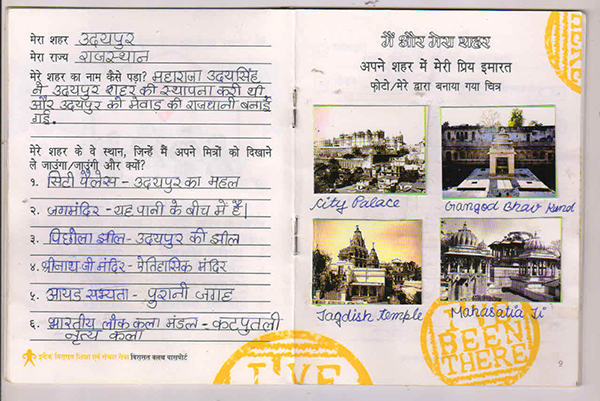 मेरा शहर उदयपुर
मेरा राज्य राजस्थान
मेरे शहर का नाम कैसे पड़ा? महाराजा उदयसिंह
ने उदयपुर शहर की स्थापना करी थी
और उदयपुर को मेवाड़ की राजधानी बनाई
गई.
मेरे शहर के वे स्थान, जिन्हें मैं अपने मित्रों को दिखाने
ले जाउंगा/जाउंगी और क्यों?
१. सिटी पैलेस - उदयपुर का महल
२. जगमंदिर - यह पानी के बीच में हैं|
३. पिछोला झील - उदयपुर की झील
४. श्रीनाथ जी मंदिर - ऐतिहासिक मंदिर
५. आयड़ सभ्यता - पुरानी जगह
६. भारतीय लोक कला मंडल - कटपुतली
नृत्य कला
इन्टेक विरासत शिक्षा एवं संचार सेवा विरासत क्लब पासपोर्ट
I'VE
मैं और मेरा शहर
अपने शहर में मेरी प्रिय इमारत
फोटो/मेरे द्वारा बनाया गया चित्र
City Palace
Gangod Bhav Kund
Jagdish temple
Mahasatia Ji
I'VE
BEEN
THERE
HERE
9